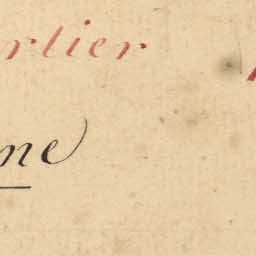 rlier
ne